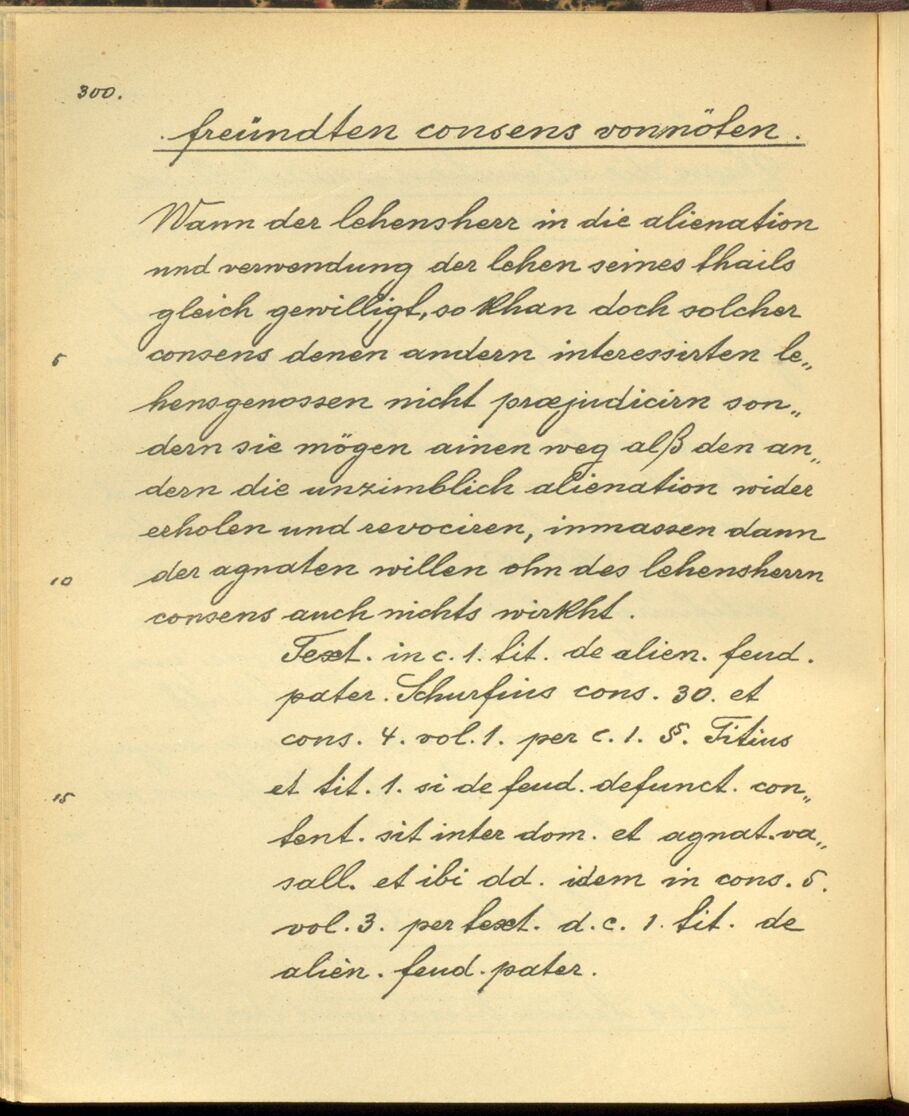 300.
. freündten consens vonnöten .
Wann der lehensherr in die alienation
und verwendung der lehen seines thails
gleich gewilligt, so khan doch solcher
5 consens denen andern interessirten le„
hensgenossen nicht præjudicirn son„
dern sie mögen ainen weg alß den an„
dern die unzimblich alienation wider
erholen und revociren, inmassen dann
10 der agnaten willen ohn des lehensherrn
consens auch nichts wirkht .
Text . in c. 1. tit . de alien . feud .
pater . Schurfius cons . 30. et
cons . 4. vol. 1. per c. 1. §. Titius
15 et tit . 1. si de feud . defunct . con„
tent . sit inter dom . et agnat . va„
sall. et ibi dd . idem in cons . 5.
vol. 3. per text . d. c. 1. tit . de
alien . feud . pater .